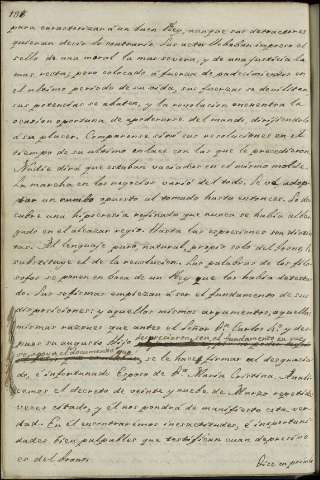 198
para caracterizar á un buen Rey, aunque sus detractores
quieran decir lo contrario. Sus actos llebaban impreso el
sello de una moral la mas severa, y de una justicia la
mas recta; pero colocado á fuerza de padecimientos en
el ultimo periodo de su vida, sus fuerzas se devilitan
sus potencias se abaten, y la revolucion encuentra la
ocasion oportuna de apoderarse del mando, dirijiendolo
á su placer. Comparense sino sus resoluciones en el
tiempo de su ultimo enlace con las que le precedieron
Nadie dirá que estaban vaciadas en el mismo molde.
La marcha en los negocios varió del todo. Se vé adop-
tar un rumbo opuesto al tomado hasta entonces. Se des-
cubre una hipocresia refinada que nunca se habia alber-
gado en el alcazar regio. Hasta las expresiones son distin-
tas. Al lenguaje puro, natural, propio solo del trono, le
substituye el de la revolucion. Las palabras de los filo-
sofos se ponen en boca de un Rey que las habia detesta-
do. Sus sofismas empiezan á ser el fundamento de sus
disposiciones; y aquellos mismos argumentos, aquellas
mismas razones que antes el Señor Dn Carlos 4º y des-
pues su augusto hijo
se le hacen firmar al desgracia-
do, é infortunado Esposo de Dª Maria Cristina. Anali-
cemos el decreto de veinte y nueve de Marzo repetidas
veces citado, y él nos pondrá de manifiesto esta ver-
dad. En él encontraremos inexactitudes, é inoportuni-
dades bien palpables que testifican cuan depresivo
es del trono.
Dice en prime